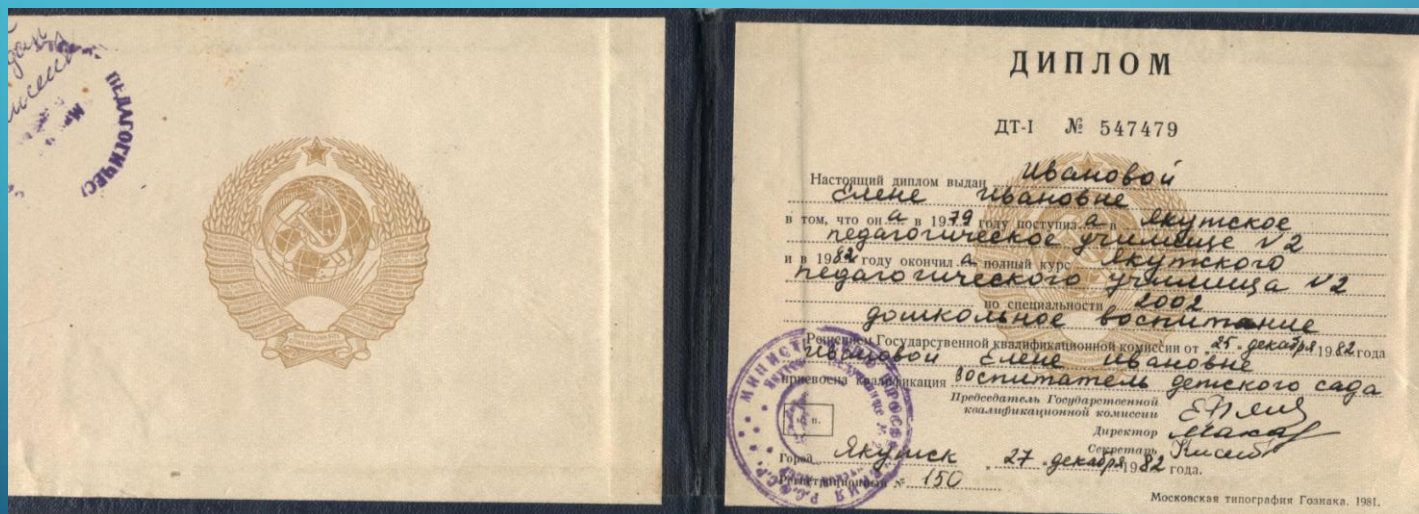 ПЕДАГОГИЧЕС
ДИПЛОМ
ДТ-I № 547479
Настоящий диплом выдан Ивановой
Елене Ивановне
в том, что он а в 1979 году поступил а в Якутское
педагогическое училище №2
и в 1982 году окончил а полный курс Якутского
педагогического училища №2
по специальности 2002
дошкольное воспитание
Решением Государственной квалификационной комиссии от 25 декабря 1982 года
Ивановой Елене Ивановне
присвоена квалификация воспитатель детского сада
Председатель Государственной
квалификационной комиссии
Директор
Секретарь
М. п.
Город Якутск 27 декабря 1982 года.
Регистрационный № 150
Московская типография Гознака. 1981.